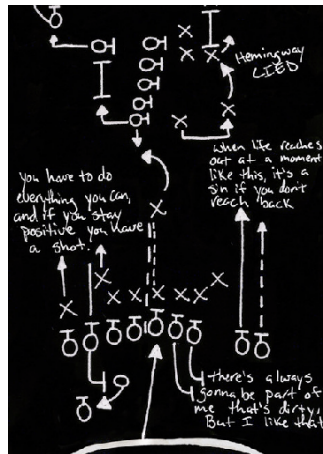 Hemingway
LIED
when life reaches
out at a moment
like this, it's a
sin if you don't
reach back
you have to do
everything you can,
and if you stay
positive you have
a shot.
there's always
gonna be part of
me that's dirty,
But I like that